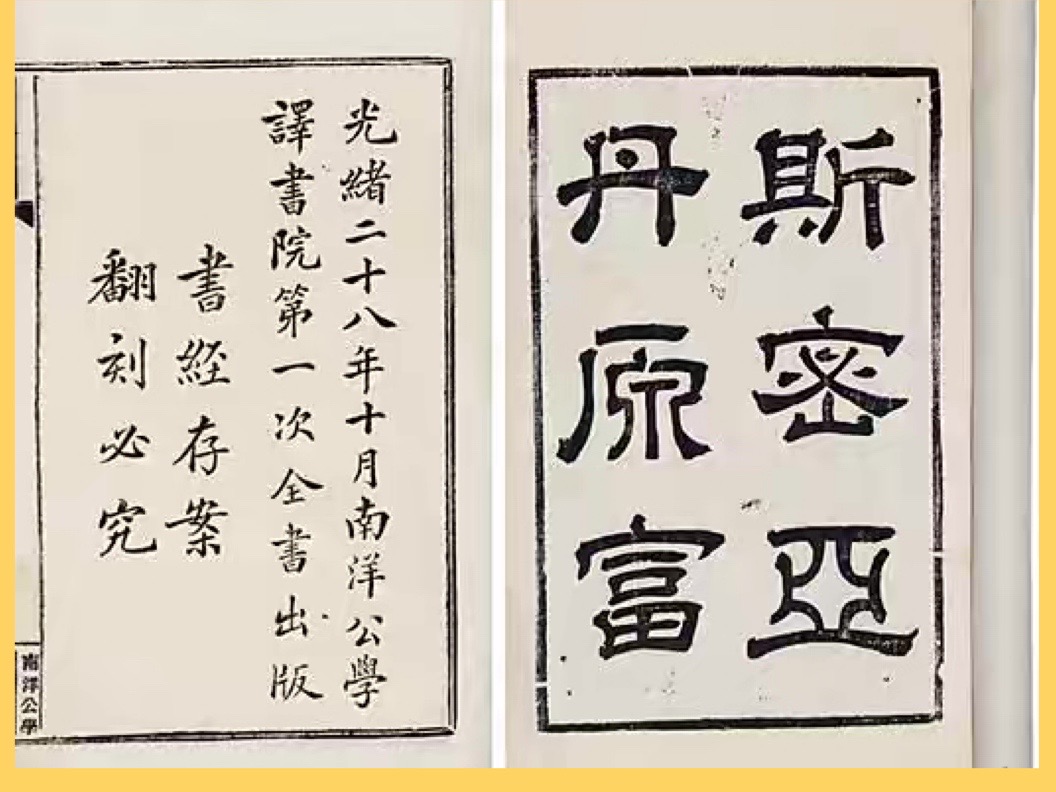 斯密亞
丹原富
光緒二十八年十月南洋公學
譯書院第一次全書出版
書經存案
翻刻必究
南洋公學